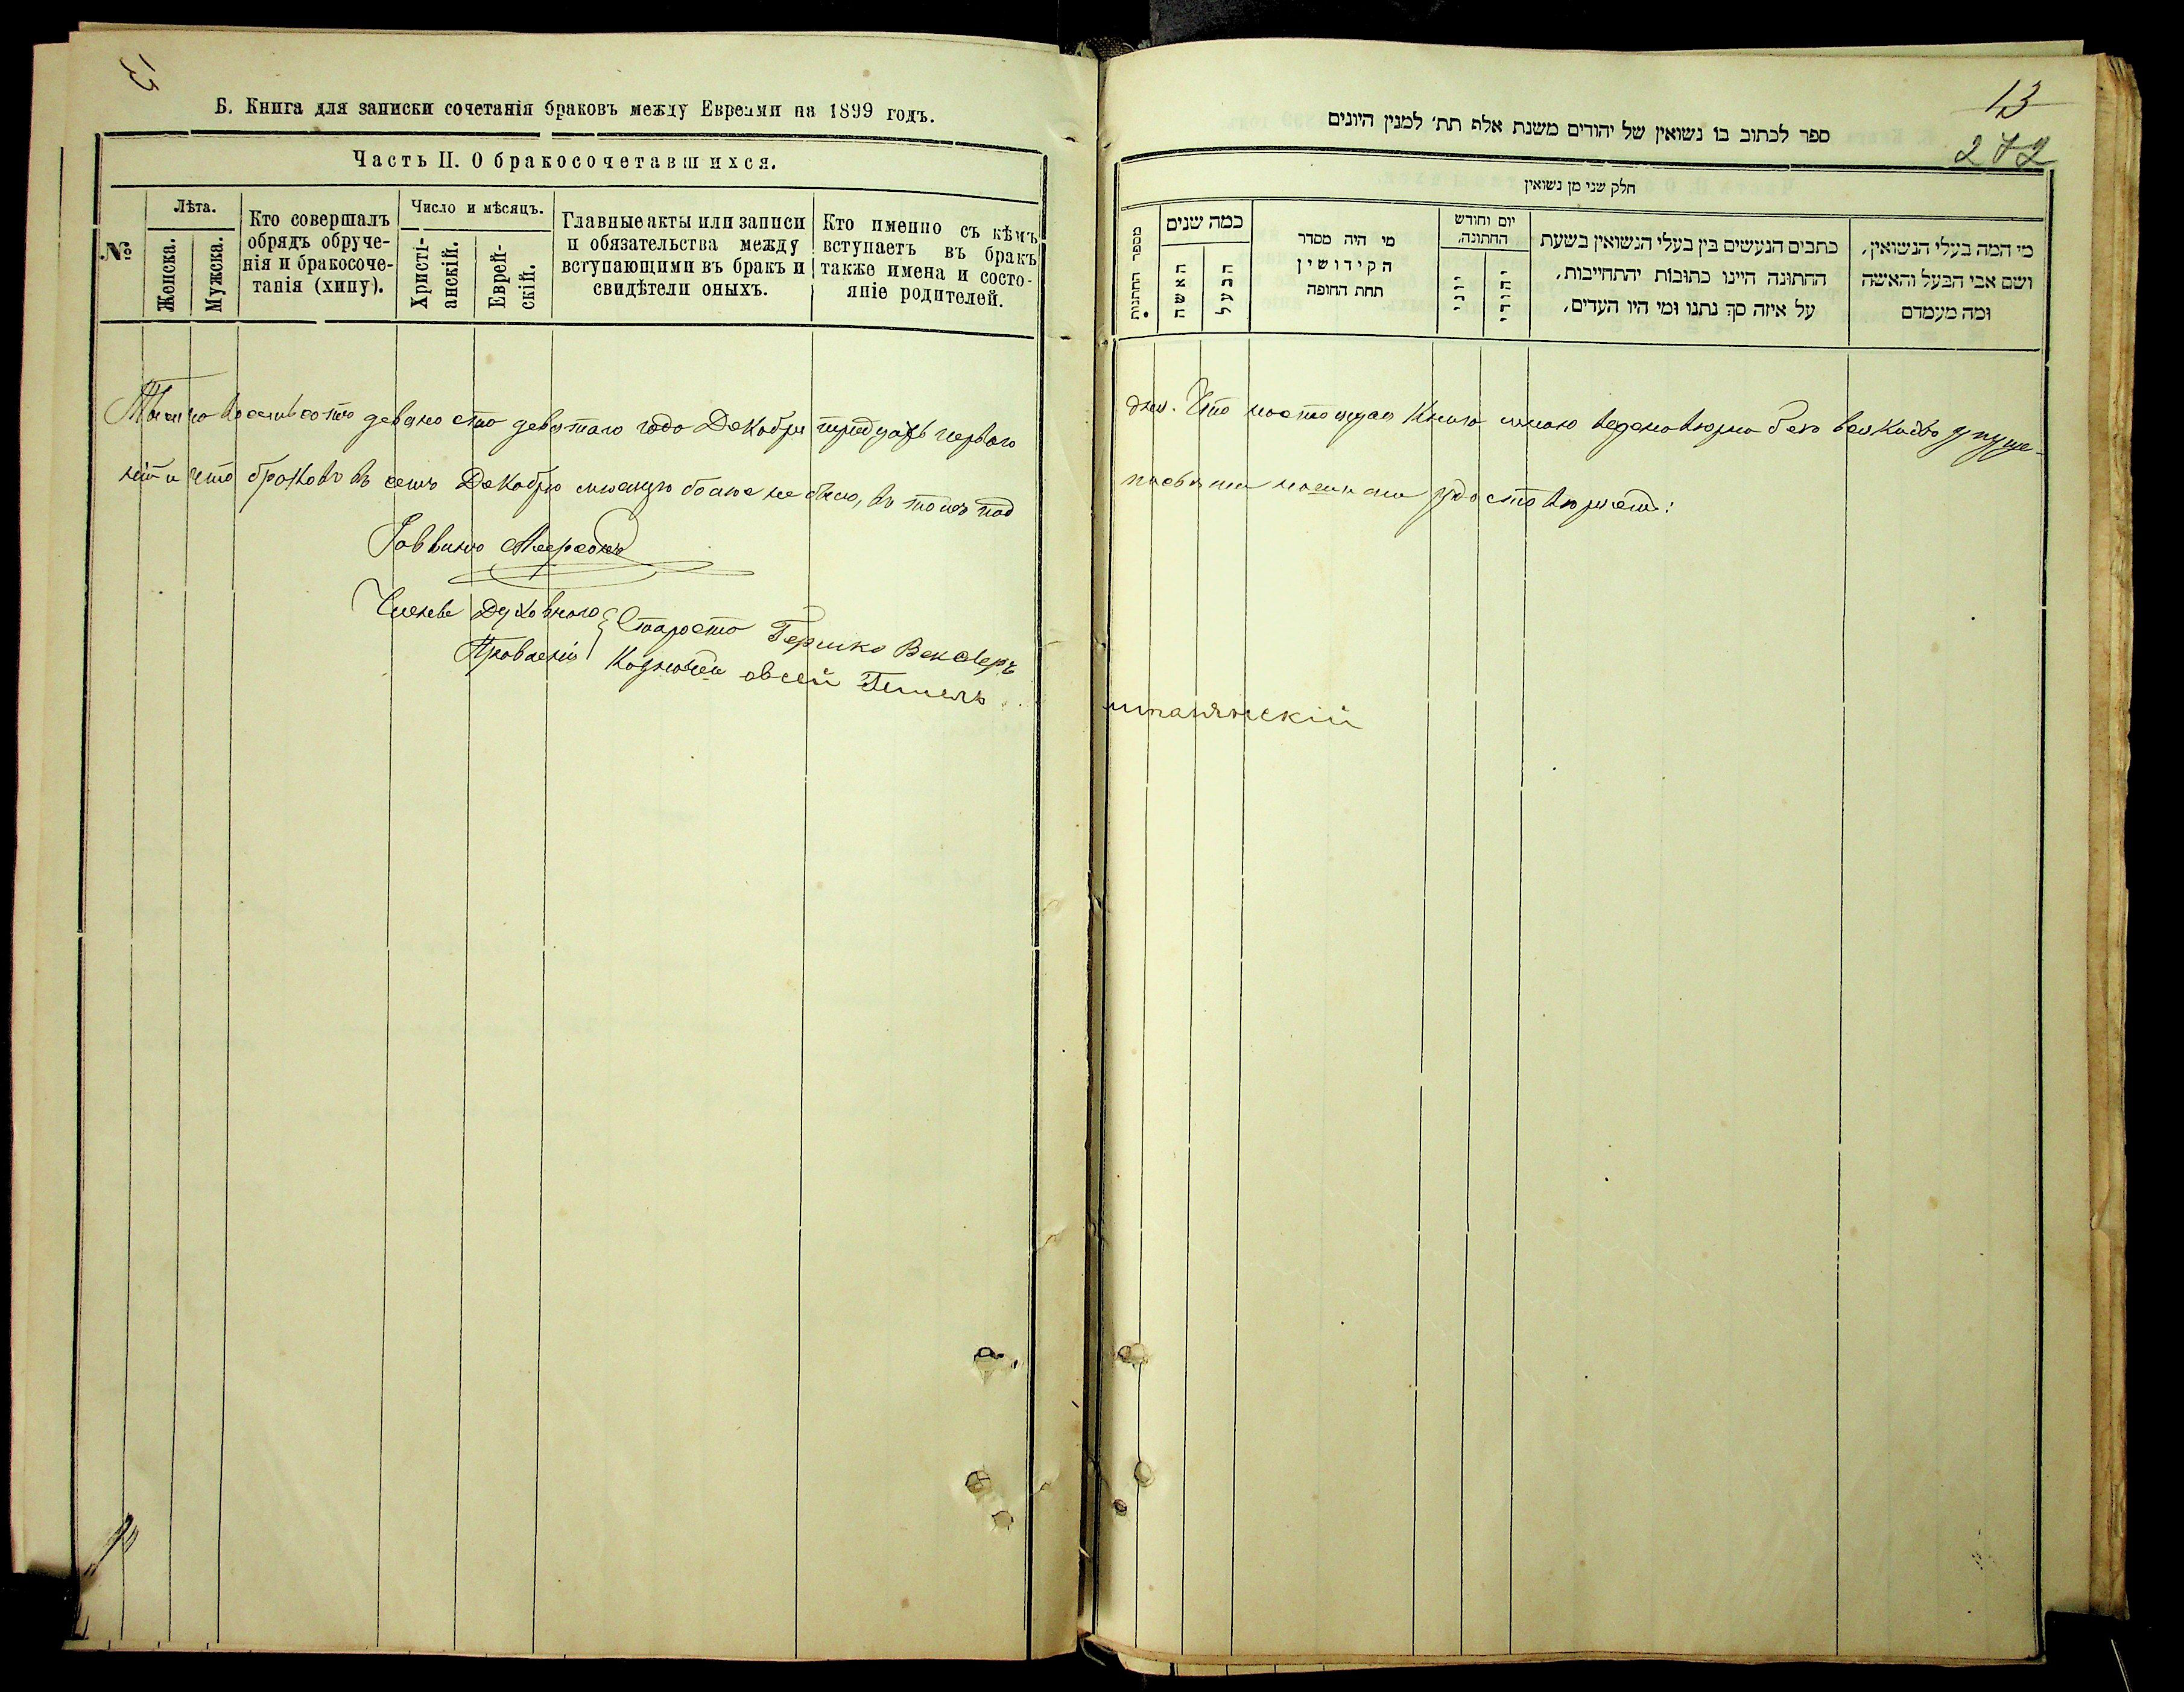 13
Б. Книга для записки сочетанія браковъ между Евреями на 1899 годъ.
Часть II. О бракосочетавшихся.
№
Лѣта.
Женска.
Мужска.
Кто совершалъ
обрядъ обруче-
нія и бракосоче-
танія (хипу).
Число и мѣсяцъ.
Христі-
анскій.
Еврей-
скій.
Главные акты или записи
и обязательства между
вступающими въ бракъ и
свидѣтели оныхъ.
Кто именно съ кѣмъ
вступаетъ въ бракъ
также имена и состо-
яніе родителей.
Тысяча восемьсотъ девяносто девятаго года Декабря тридцать перваго
нія и что браковъ въ семъ Декабрѣ мѣсяцѣ болѣе не было, въ томъ под
Раввинъ Меерсонъ
Члены Духовнаго
Правленія
Староста Гершко Векслеръ
Казначей Овсей
13
272
ספר לכתוב בו נשואין של יהודים משנת אלף תת׳ למנין היונים
חלק שני מן נשואין
מספר החתנות
כמה שנים
האשה
הבעל
מי היה מסדר
הקידושין
תחת החופה
יום וחודש
החתונה.
יוני
יהודי
כתבים הנעשים בין בעלי הנשואין בשעת
החתונה היינו כתובות יהתחייבות,
על איזה סך נתנו ומי היו העדים,
מי המה בעלי הנשואין,
ושם אבי הבעל והאשה
ומה מעמדם
дня. Что настоящая Книга мною ведена вѣрно безъ всякаго упуще-
удостовѣряемъ: